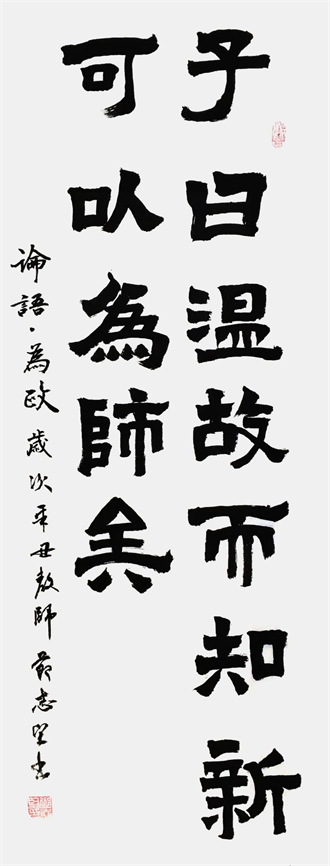 子曰温故而知新
可以為師矣
論語·為政 歲次辛丑教師節志坚书